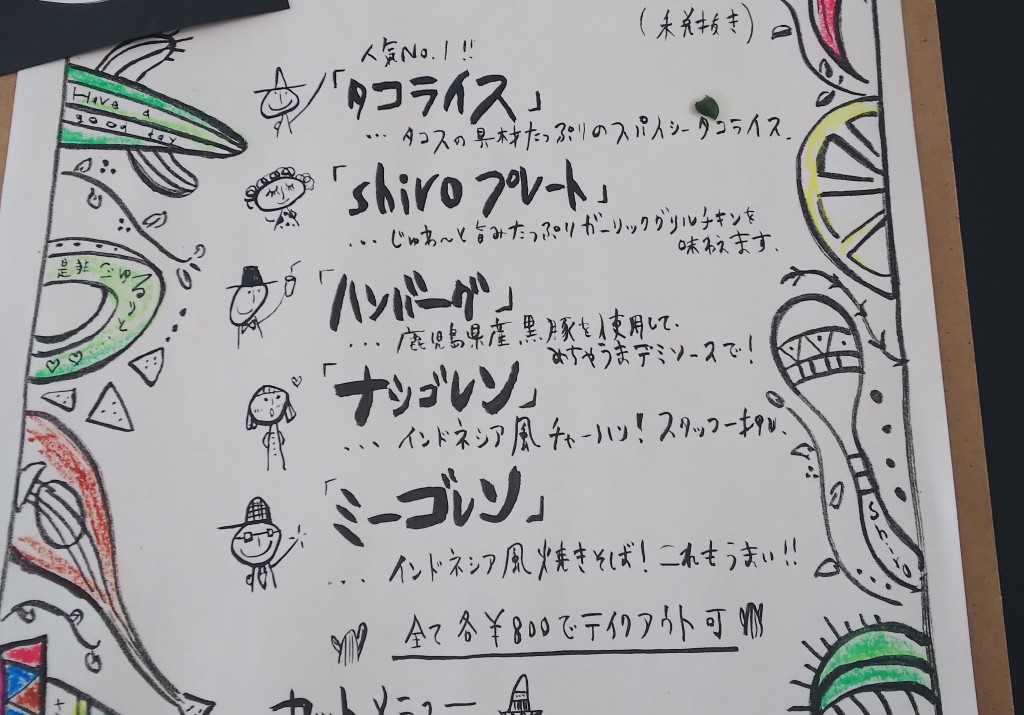 (税抜き)
人気No.1!!
「タコライス」
... タコスの具材たっぷりのスパイシータコライス.
「shiro プレート」
... じゅわ〜と旨みたっぷりガーリックグリルチキンを
味わえます.
「ハンバーグ」
... 鹿児島県産黒豚を使用して.
めちゃうまデミソースで!
「ナシゴレン」
... インドネシア風チャーハン! スタッフ一押し.
「ミーゴレン」
.... インドネシア風焼きそば! これもうまい!!
全て各¥800でテイクアウト可
Have a
good day
是非ごゆるりと
Shiro